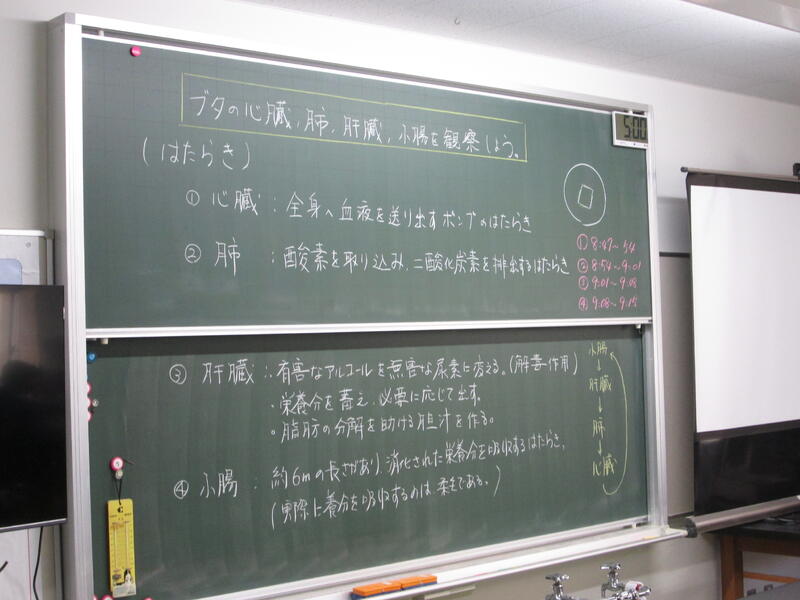 ブタの心臓、肺、肝臓、小腸を観察しよう。
5:00
(はたらき)
① 心臓：全身へ血液を送り出すポンプのはたらき
② 肺：酸素を取り込み、二酸化炭素を排出するはたらき
① 8:47〜54
② 8:54〜9:01
③ 9:01〜9:08
④ 9:08〜9:15
③ 肝臓：・有害なアルコールを無害な尿素に変える。(解毒作用)
・栄養分を蓄え、必要に応じて出す。
・脂肪の分解を助ける胆汁を作る。
④ 小腸：約6mの長さがあり、消化された栄養分を吸収するはたらき。
(実際に養分を吸収するのは柔毛である。)
小腸
↓
肝臓
↓
肺
↓
心臓